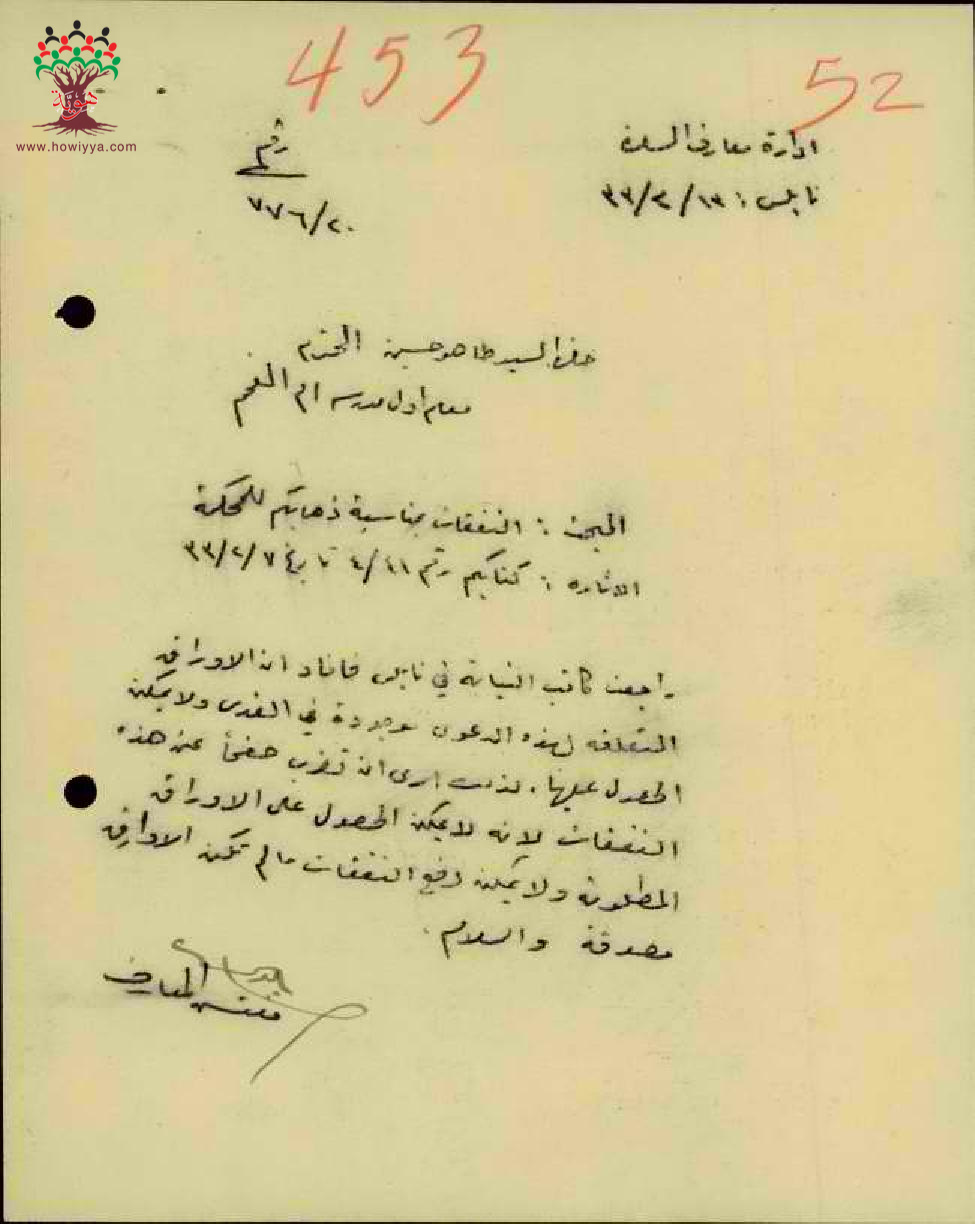 453
52
هوية
www.howiyya.com
ادارة معارف السامرة
رقم
نابلس: ١٣/٢/٣٣
٧٧٦/٢٠
حضرة السيد طاهر حسين المحترم
معلم اول مدرسة ام الفحم
المبحث: النفقات بمناسبة ذهابكم للمحكمة
الاشارة: كتابكم رقم ٤/٤١ تاريخ ٧/٢/٣٣
راجعت كاتب النيابة في نابلس فافاد ان الاوراق
المتعلقة بهذه الدعوى موجودة في القدس ولا يمكن
الحصول عليها. لذلك ارى ان تضرب صفحاً عن هذه
النفقات لانه لا يمكن الحصول على الاوراق
المطلوبة ولا يمكن دفع النفقات ما لم تكن الاوراق
مصدقة والسلام.
مفتش المعارف